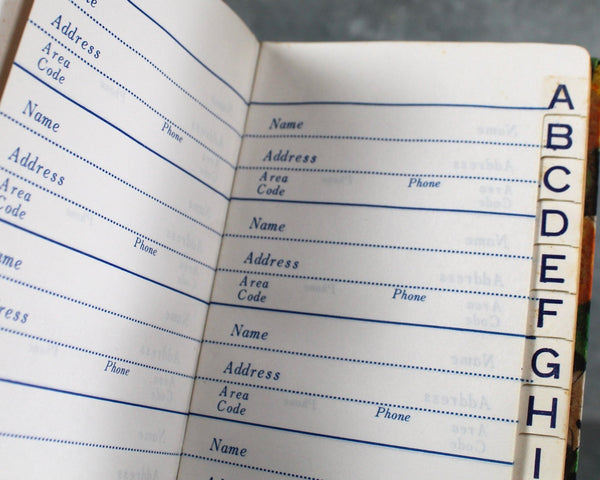 te
Address
Area
Code
Phone
Name
Address
Area
Code
Phone
me
ress
Phone
Name
Address
Area
Code
Phone
Name
Address
Area
Code
Phone
Name
Address
Area
Code
Phone
Name
A
B
C
D
E
F
G
H
I